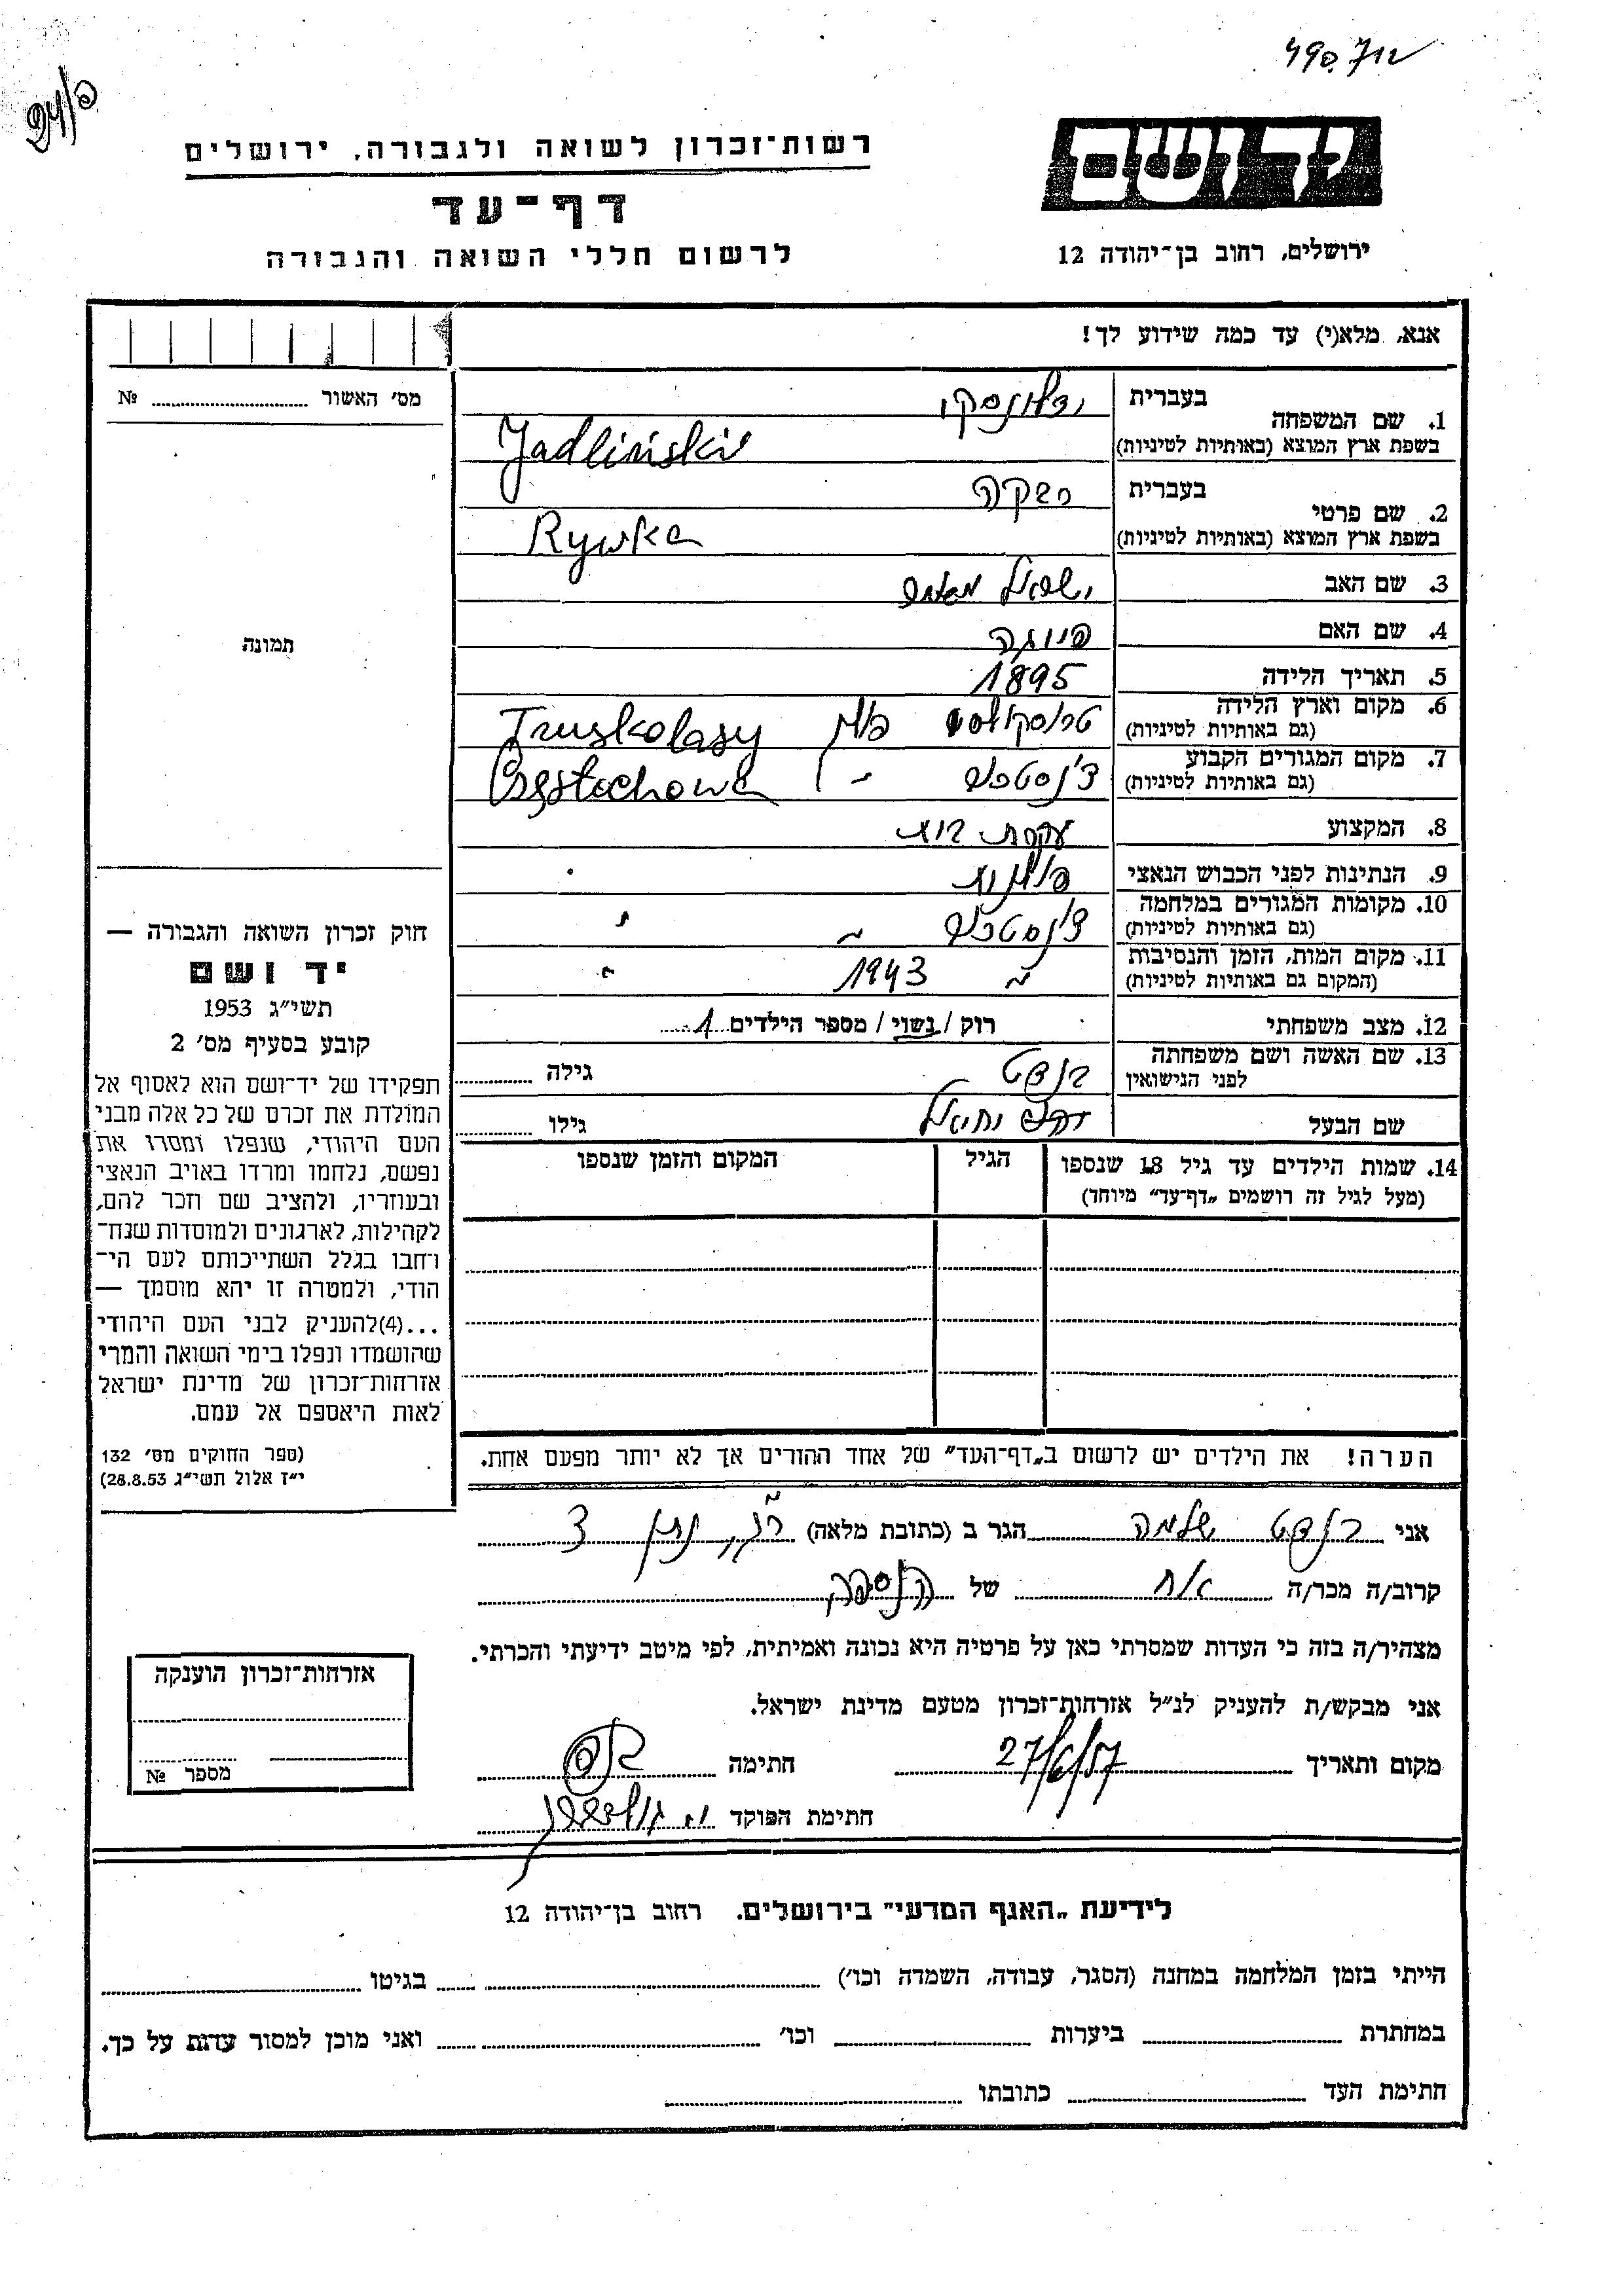 יד ושם
ירושלים, רחוב בן־יהודה 12
רשות־זכרון לשואה ולגבורה, ירושלים
דף־עד
לרשום חללי השואה והגבורה
אנא, מלא(י) עד כמה שידוע לך!
מס׳ האשור № 
1. שם המשפחה
בעברית
בשפת ארץ המוצא (באותיות לטיניות) Jadliński
2. שם פרטי
בעברית רבקה
בשפת ארץ המוצא (באותיות לטיניות) Rywka
3. שם האב ישראל
4. שם האם
5. תאריך הלידה 1895
6. מקום וארץ הלידה Truskolasy
(גם באותיות לטיניות)
7. מקום המגורים הקבוע צ'נסטכוב Częstochowa
(גם באותיות לטיניות)
8. המקצוע עקרת בית
9. הנתינות לפני הכבוש הנאצי פולנית
10. מקומות המגורים במלחמה צ'נסטכוב
(גם באותיות לטיניות)
11. מקום המות, הזמן והנסיבות 1943
(המקום גם באותיות לטיניות)
12. מצב משפחתי רוק / נשוי / מספר הילדים 1
13. שם האשה ושם משפחתה גילה
לפני הנישואין
שם הבעל גילו
14. שמות הילדים עד גיל 18 שנספו הגיל המקום והזמן שנספו
(מעל לגיל זה רושמים „דף־עד״ מיוחד)
תמונה
חוק זכרון השואה והגבורה —
יד ושם
תשי״ג 1953
קובע בסעיף מס׳ 2
תפקידו של יד־ושם הוא לאסוף אל
המולדת את זכרם של כל אלה מבני
העם היהודי, שנפלו ומסרו את
נפשם, נלחמו ומרדו באויב הנאצי
ובעוזריו, ולהציב שם וזכר להם,
לקהילות, לארגונים ולמוסדות שנח־
רחבו בגלל השתייכותם לעם הי־
הודי, ולמטרה זו יהא מוסמך —
...(4)להעניק לבני העם היהודי
שהושמדו ונפלו בימי השואה והמרי
אזרחות־זכרון של מדינת ישראל
לאות היאספם אל עמם.
(ספר החוקים מס׳ 132
י״ז אלול תשי״ג 28.8.53)
הערה! את הילדים יש לרשום ב„דף־העד״ של אחד ההורים אך לא יותר מפעם אחת.
אני שלמה הגר ב (כתובת מלאה)
קרוב/ה מכר/ה אח של
מצהיר/ה בזה כי העדות שמסרתי כאן על פרטיה היא נכונה ואמיתית, לפי מיטב ידיעתי והכרתי.
אני מבקש/ת להעניק לנ״ל אזרחות־זכרון מטעם מדינת ישראל.
מקום ותאריך 27/6/57 חתימה
חתימת הפוקד
אזרחות־זכרון הוענקה
מספר №
לידיעת „האגף המדעי״ בירושלים. רחוב בן־יהודה 12
הייתי בזמן המלחמה במחנה (הסגר, עבודה, השמדה וכו׳) בגיטו
במחתרת ביערות וכו׳ ואני מוכן למסור עדות על כך.
חתימת העד כתובתו